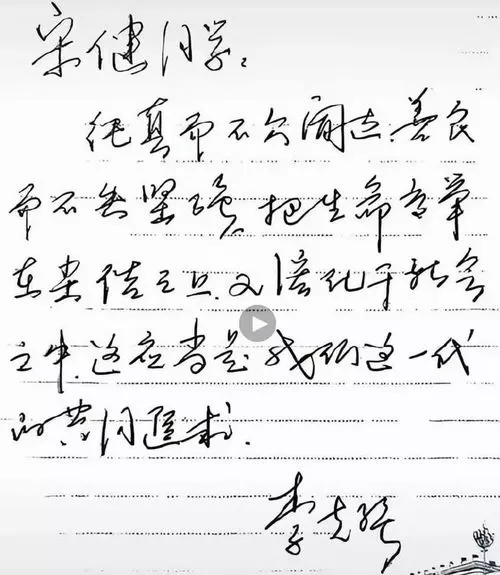 宋健同学：
纯真而不 善良
而不失坚强。把生命高举
在尘俗之上,又溶化于社会
之中,这应当是我们这一代
的共同追求.
李克强